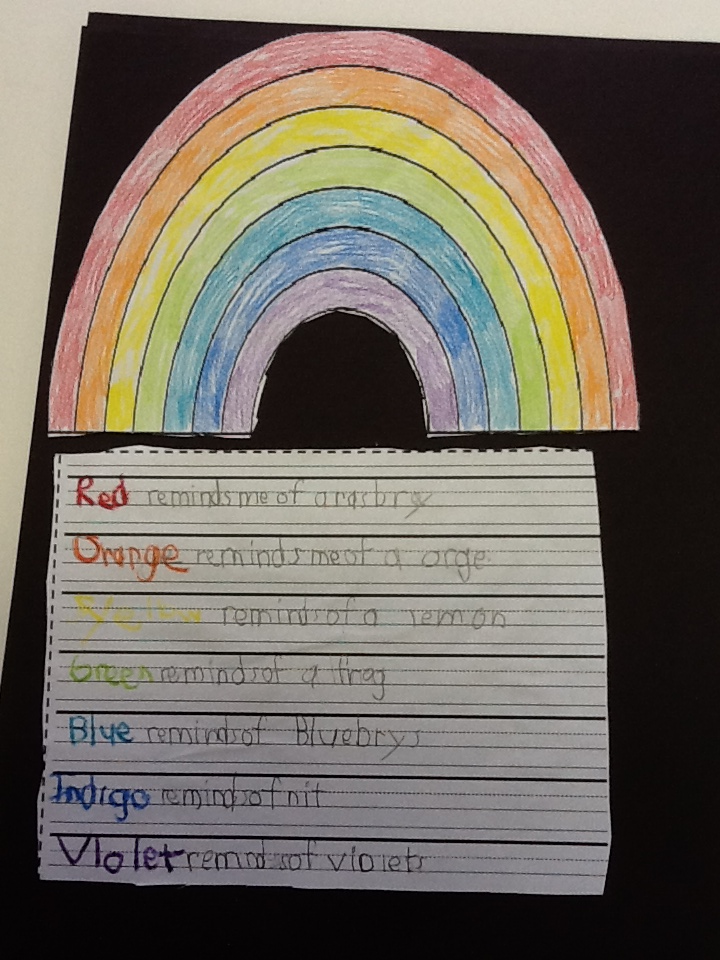 Red reminds me of a rasbry
Orange reminds me of a orge
Yellow reminds of a lemon
Green reminds of a frog
Blue reminds of Bluebrys
Indigo reminds of nit
Violet reminds of violets